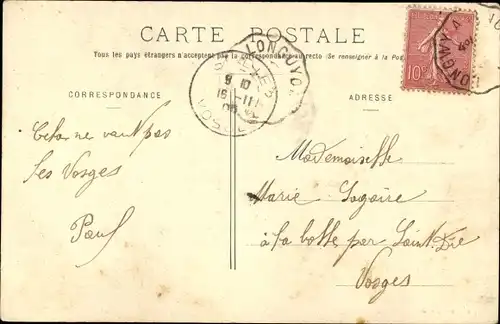 CARTE POSTALE
Tous les pays étrangers n'acceptent pas la correspondance au recto (Se renseigner à la Poste)
CORRESPONDANCE
ADRESSE
LONGUYON
9 10
16 -11
05
LONGWY A
10
Cela ne vaut pas
les Vosges
Paul
Mademoiselle
Marie
à la bolle par Saint Dié
Vosges